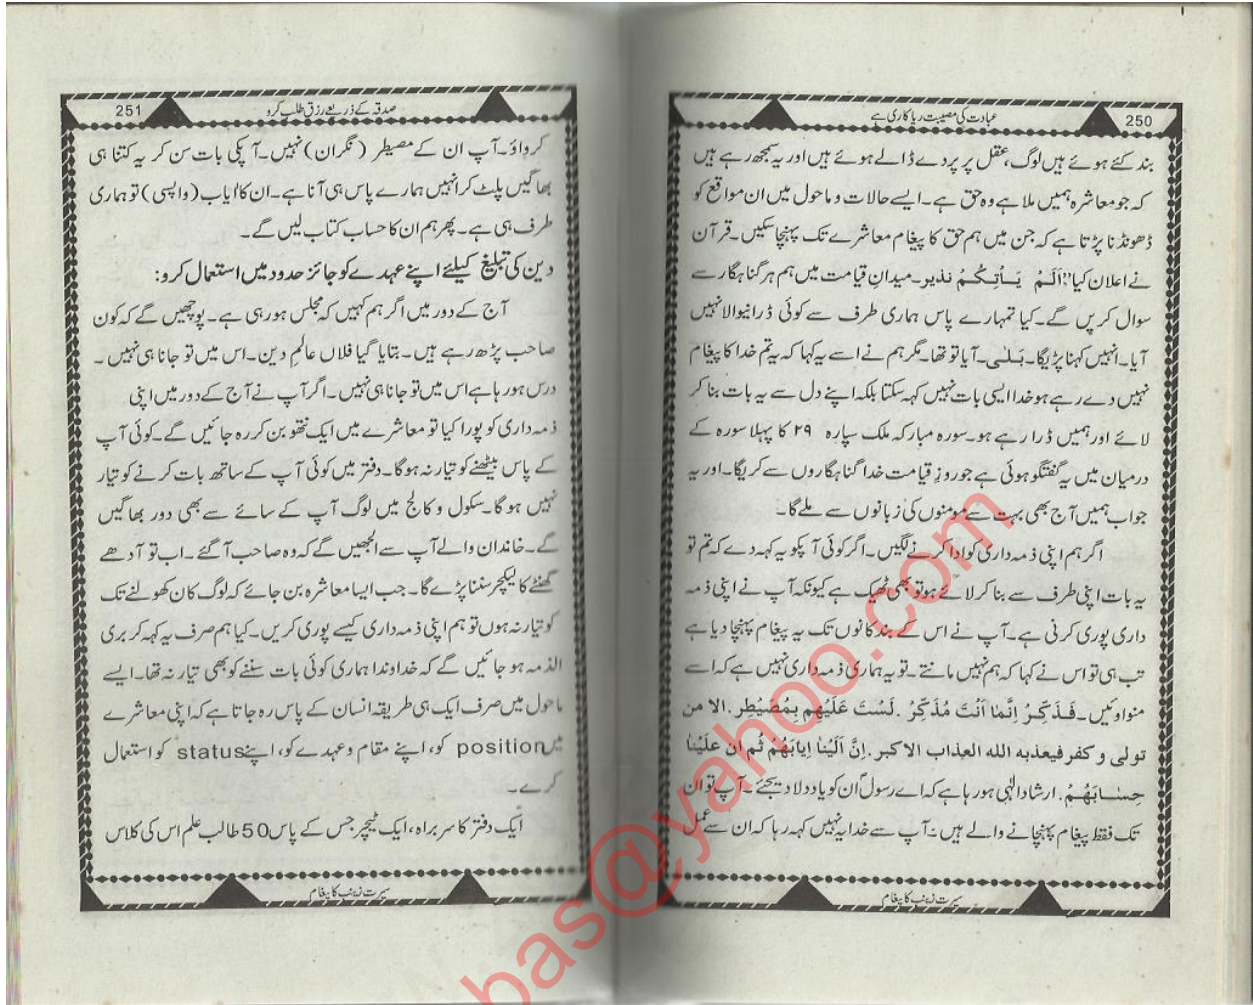 250
عبادت کی مصیبت ریاکاری ہے
بند کئے ہوئے ہیں لوگ، عقل پر پردے ڈالے ہوئے ہیں اور یہ سمجھ رہے ہیں
کہ جو معاشرہ ہمیں ملا ہے وہ حق ہے۔ ایسے حالات و ماحول میں ان مواقع کو
ڈھونڈنا پڑتا ہے کہ جن میں ہم حق کا پیغام معاشرے تک پہنچا سکیں۔ قرآن
نے اعلان کیا "اَلَمْ یَـاْتِکُمْ نذیر۔ میدانِ قیامت میں ہم ہر گناہگار سے
سوال کریں گے۔ کیا تمہارے پاس ہماری طرف سے کوئی ڈرانیوالا نہیں
آیا۔ انہیں کہنا پڑیگا۔ بَـلٰـی۔ آیا تو تھا۔ مگر ہم نے اسے یہ کہا کہ یہ تم خدا کا پیغام
نہیں دے رہے ہو خدا ایسی بات نہیں کہہ سکتا بلکہ اپنے دل سے یہ بات بنا کر
لائے اور ہمیں ڈرا رہے ہو۔ سورہ مبارکہ ملک سپارہ ۲۹ کا پہلا سورہ کے
درمیان میں یہ گفتگو ہوئی ہے جو روزِ قیامت خدا گناہگاروں سے کریگا۔ اور یہ
جواب ہمیں آج بھی بہت سے مومنوں کی زبانوں سے ملے گا۔
اگر ہم اپنی ذمہ داری کو ادا کرنے لگیں۔ اگر کوئی آپکو یہ کہہ دے کہ تم تو
یہ بات اپنی طرف سے بنا کر لائے ہو تو بھی ٹھیک ہے کیونکہ آپ نے اپنی ذمہ
داری پوری کرنی ہے۔ آپ نے اس کے بند کانوں تک یہ پیغام پہنچا دیا ہے
تب ہی تو اس نے کہا کہ ہم نہیں مانتے۔ تو یہ ہماری ذمہ داری نہیں ہے کہ اسے
منوا وئیں۔ فَـذَکِّـرْ اِنَّـمَا اَنْتَ مُذَکِّرُ . لَسْتَ عَلَیْهِم بِمُصَیْطِر . الا من
تولی و کفر فیعذبه الله العذاب الاکبر . اِنَّ اَلَیْنٰا اِیابَهُمْ ثُم اِن عَلَیْنٰا
حِسٰـابَهُـمْ . ارشاد الٰہی ہو رہا ہے کہ اے رسولؐ ان کو یاد دلا دیجئے۔ آپ تو ان
تک فقط پیغام پہنچانے والے ہیں۔ آپ سے خدا یہ نہیں کہہ رہا کہ ان سے عمل
سیرت زینبؑ کا پیغام
251
صدقہ کے ذریعے رزق طلب کرو
کرواؤ۔ آپ ان کے مصیطر (نگران) نہیں۔ آپکی بات سن کر یہ کتنا ہی
بھاگیں پلٹ کر انہیں ہمارے پاس ہی آنا ہے۔ ان کا ایاب (واپسی) تو ہماری
طرف ہی ہے۔ پھر ہم ان کا حساب کتاب لیں گے۔
دین کی تبلیغ کیلئے اپنے عہدے کو جائز حدود میں استعمال کرو:
آج کے دور میں اگر ہم کہیں کہ مجلس ہو رہی ہے۔ پوچھیں گے کہ کون
صاحب پڑھ رہے ہیں۔ بتایا گیا فلاں عالم دین۔ اس میں تو جانا ہی نہیں۔
درس ہو رہا ہے اس میں تو جانا ہی نہیں۔ اگر آپ نے آج کے دور میں اپنی
ذمہ داری کو پورا کیا تو معاشرے میں ایک نتھو بن کر رہ جائیں گے۔ کوئی آپ
کے پاس بیٹھنے کو تیار نہ ہوگا۔ دفتر میں کوئی آپ کے ساتھ بات کرنے کو تیار
نہیں ہوگا۔ سکول و کالج میں لوگ آپ کے سائے سے بھی دور بھاگیں
گے۔ خاندان والے آپ سے الجھیں گے کہ وہ صاحب آگئے۔ اب تو آدھے
گھنٹے کا لیکچر سننا پڑے گا۔ جب ایسا معاشرہ بن جائے کہ لوگ کان کھولنے تک
کو تیار نہ ہوں تو ہم اپنی ذمہ داری کیسے پوری کریں۔ کیا ہم صرف یہ کہہ کر بری
الذمہ ہو جائیں گے کہ خداوندا ہماری کوئی بات سننے کو بھی تیار نہ تھا۔ ایسے
ماحول میں صرف ایک ہی طریقہ انسان کے پاس رہ جاتا ہے کہ اپنی معاشرے
میں position کو، اپنے مقام و عہدے کو، اپنے status کو استعمال
کرے۔
ایک دفتر کا سربراہ، ایک ٹیچر جس کے پاس 50 طالب علم اس کی کلاس
سیرت زینبؑ کا پیغام
bas@yahoo.com